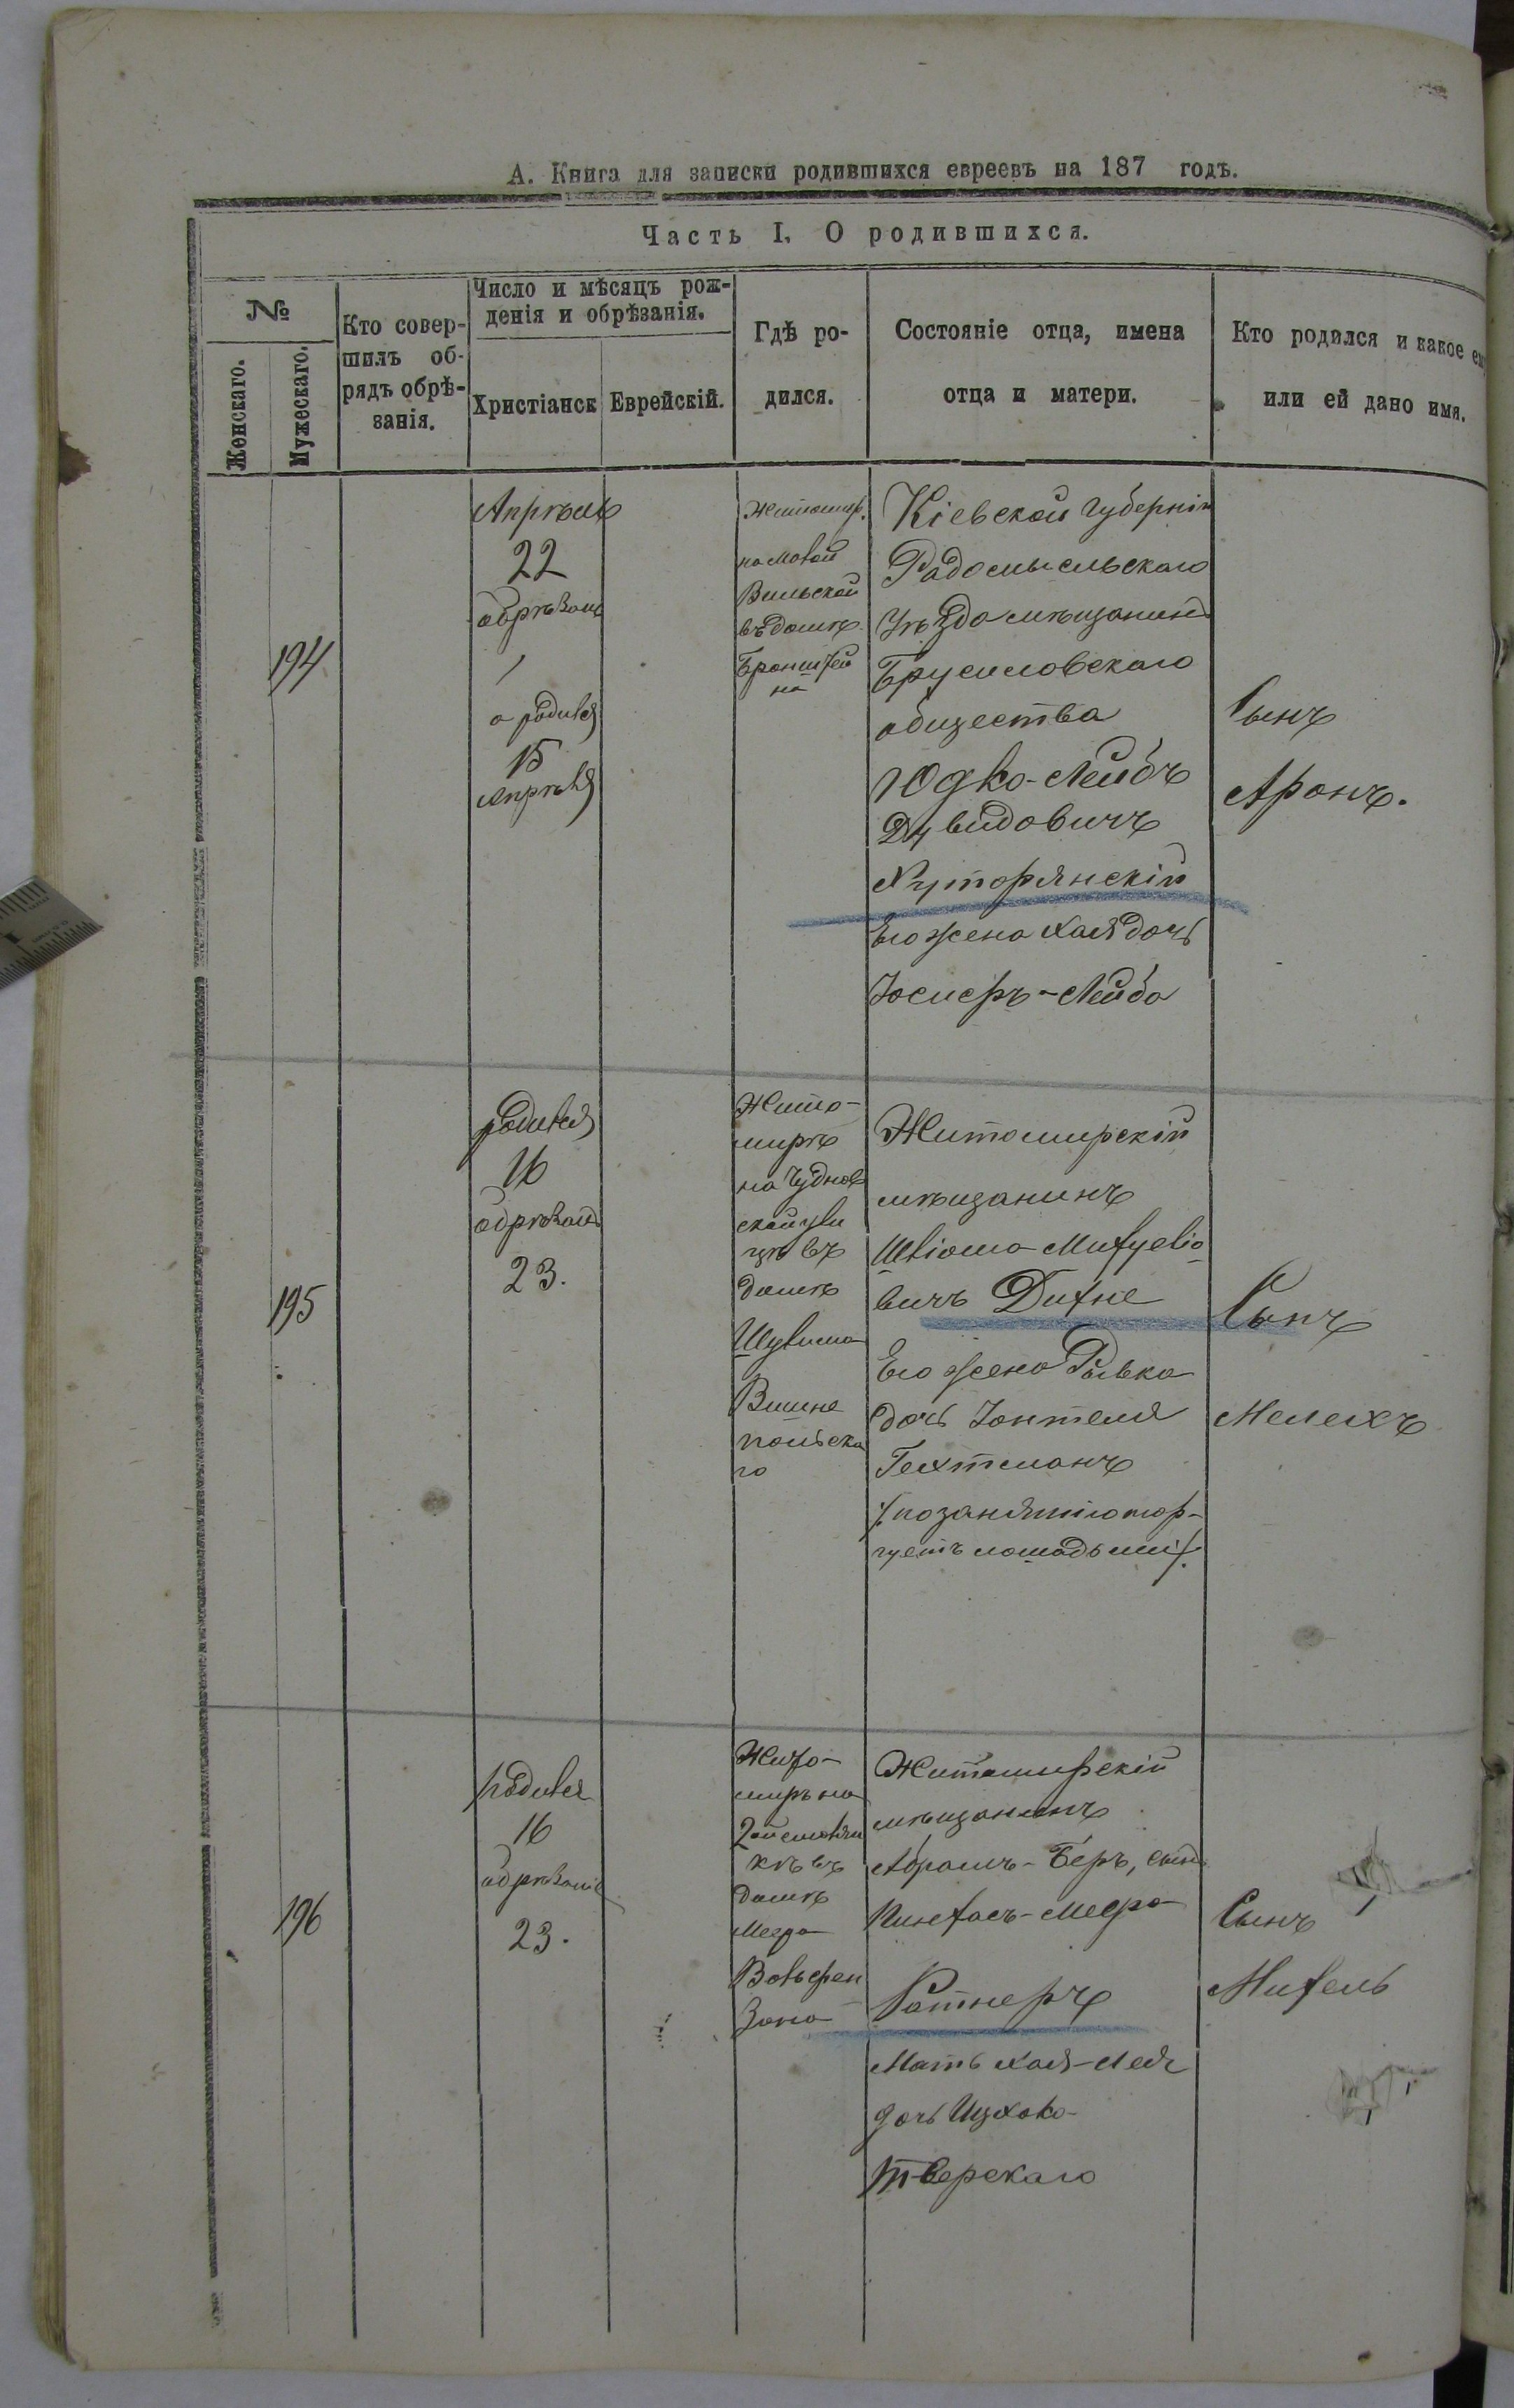 А. Книга для записки родившихся евреевъ на 187 годъ.
Часть I. О родившихся.
№
Женскаго.
Мужескаго.
Кто совер-
шилъ об-
рядъ обрѣ-
занія.
Число и мѣсяцъ рож-
денія и обрѣзанія.
Христіанск
Еврейскій.
Гдѣ ро-
дился.
Состояніе отца, имена
отца и матери.
Кто родился и какое ему
или ей дано имя.
194
Апрѣль
22
обрѣзанъ
а родился
15
Апрѣля
Житомир.
на Малой
Вильской
въ домѣ
Бронштей
на
Кіевской губерніи
Радомысльскаго
Уѣзда мѣщанинъ
Брусиловскаго
общества
Юдко-Лейбъ
Давидовичъ
Хуторянскій
Его жена Хая дочь
Іосифъ-Лейба
Сынъ
Аронъ.
195
родился
16
обрѣзанъ
23.
Жито-
мирѣ
на Чуднов
ской ули
цѣ въ
домѣ
Шулима
Вишне
польска
го
Житомирскій
мѣщанинъ
Шліома
вичъ Дихне
Его жена Рывка
дочь Іонтеля
Гехтманъ
/: по занятію тор-
гуетъ лошадьми :/
Сынъ
Мелехъ
196
родился
16
обрѣзанъ
23.
Жито-
миръ на
2ой
кѣ въ
домѣ
Меера
Вольфен
зона
Житомирскій
мѣщанинъ
Абрамъ-Беръ, сынъ
Пинхасъ-Меера
Ратнеръ
Мать Хая-Лея
дочь Ицхока
Тверскаго
Сынъ
Михель